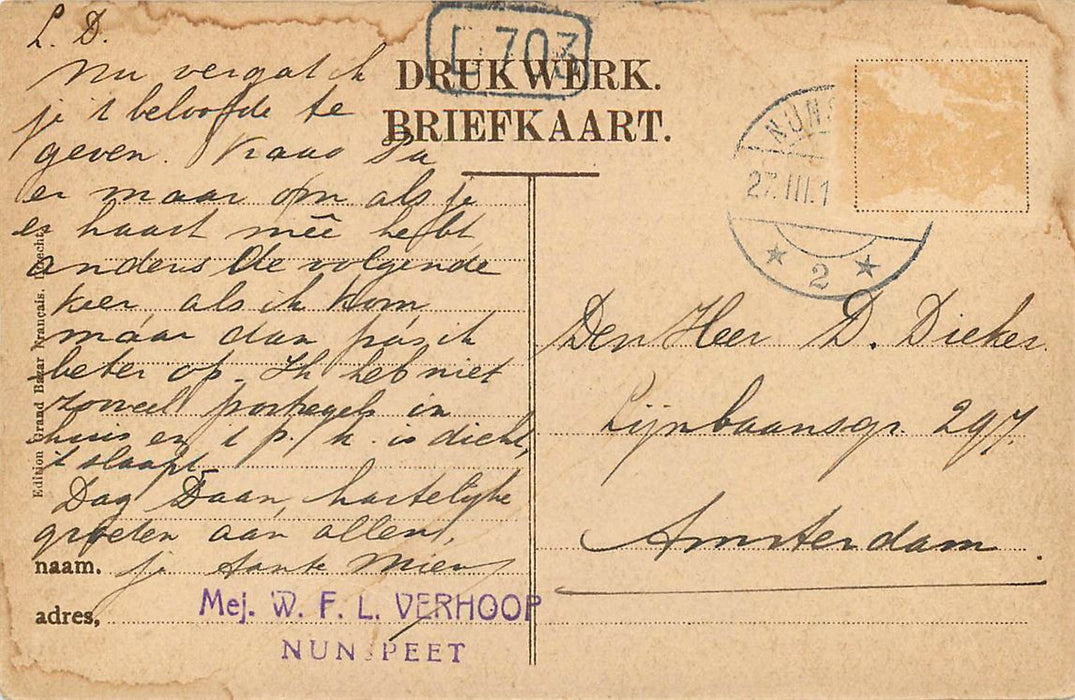 L. D.
Nu vergat ik
je 't beloofde te
geven. Pa
er maar om als je
er haast mêê hebt
anders de volgende
keer als ik kom
maar dan pas ik
beter op. Ik heb niet
zooveel postzegels in
huis en 't p. k. is dicht,
't slaapt.
Dag Daan, hartelijke
groeten aan allen,
naam. je tante Mien
adres,
Mej. W. F. L. VERHOOP
NUNSPEET
Edition Grand Bazar Français. Utrecht
L 703
DRUKWERK.
BRIEFKAART.
NUNS
27.III.1
2
Den Heer D. Dieker
Lijnbaansgr. 297.
Amsterdam.